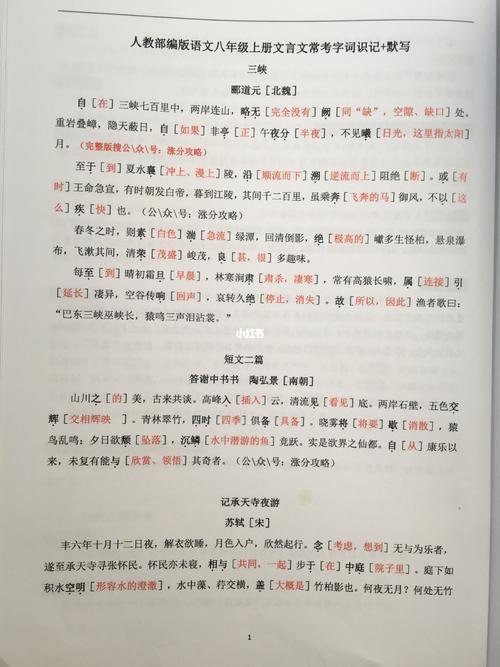 人教部编版语文八年级上册文言文常考字词识记+默写
三峡
郦道元［北魏］
自［在］三峡七百里中，两岸连山，略无［完全没有］阙［同“缺”，空隙、缺口］处。
重岩叠嶂，隐天蔽日，自［如果］非亭［正］午夜分［半夜］，不见曦［日光，这里指太阳］
月。（完整版搜公\众\号：涨分攻略）
至于［到］夏水襄［冲上、漫上］陵，沿［顺流而下］溯［逆流而上］阻绝［断］。或［有
时］王命急宣，有时朝发白帝，暮到江陵，其间千二百里，虽乘奔［飞奔的马］御风，不以［这
么］疾［快］也。（公\众\号：涨分攻略）
春冬之时，则素［白色］湍［急流］绿潭，回清倒影，绝［极高的］巘多生怪柏，悬泉瀑
布，飞漱其间，清荣［茂盛］峻茂，良［甚，很］多趣味。
每至［到］晴初霜旦［早晨］，林寒涧肃［肃杀，凄寒］，常有高猿长啸，属［连接］引
［延长］凄异，空谷传响［回声］，哀转久绝［停止，消失］。故［所以，因此］渔者歌曰：
“巴东三峡巫峡长，猿鸣三声泪沾裳。”
小红书
短文二篇
答谢中书书　陶弘景［南朝］
山川之［的］美，古来共谈。高峰入［插入］云，清流见［看见］底。两岸石壁，五色交
辉［交相辉映　］。青林翠竹，四时［四季］俱备［具备］。晓雾将［将要］歇［消散］，猿
鸟乱鸣；夕日欲颓［坠落］，沉鳞［水中潜游的鱼］竞跃。实是欲界之仙都。自［从］康乐以
来，未复有能与［欣赏、领悟］其奇者。（公\众\号：涨分攻略）
记承天寺夜游
苏轼［宋］
丰六年十月十二日夜，解衣欲睡，月色入户，欣然起行。念［考虑，想到］无与为乐者，
遂至承天寺寻张怀民。怀民亦未寝，相与［共同，一起］步于［在］中庭［院子里］。庭下如
积水空明［形容水的澄澈］，水中藻、荇交横，盖［大概是］竹柏影也。何夜无月？何处无竹
1